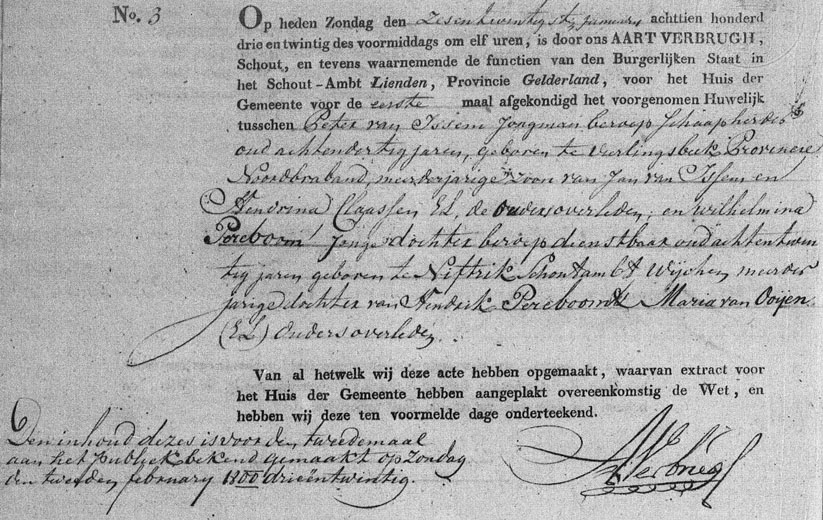 No. 3
Op heden Zondag den Zesentwintigste january achttien honderd
drie en twintig des voormiddags om elf uren, is door ons AART VERBRUGH,
Schout, en tevens waarnemende de functien van den Burgerlijken Staat in
het Schout-Ambt Lienden, Provincie Gelderland, voor het Huis der
Gemeente voor de eerste maal afgekondigd het voorgenomen Huwelijk
tusschen Peter van Issem Jongman beroep Schaapherder
oud achtendertig jaren, geboren te Vierlingsbeek Provincie
Noordbraband, meerderjarige zoon van Jan van Issem en
Hendrina Claassen EL, de ouders overleden; en Wilhelmina
Pereboom Jonge dochter beroep dienstbaar oud achtentwin
tig jaren geboren te Niftrik Schoutambt Wijchen meerder
jarige dochter van Hendrik Pereboom & Maria van Ooijen
(EL) Ouders overleden.
Van al hetwelk wij deze acte hebben opgemaakt, waarvan extract voor
het Huis der Gemeente hebben aangeplakt overeenkomstig de Wet, en
hebben wij deze ten voormelde dage onderteekend.
Den inhoud dezes is voor den tweedemaal
aan het publiek bekend gemaakt op zondag
den tweeden february 1800 drieëntwintig.
AVerbrugh